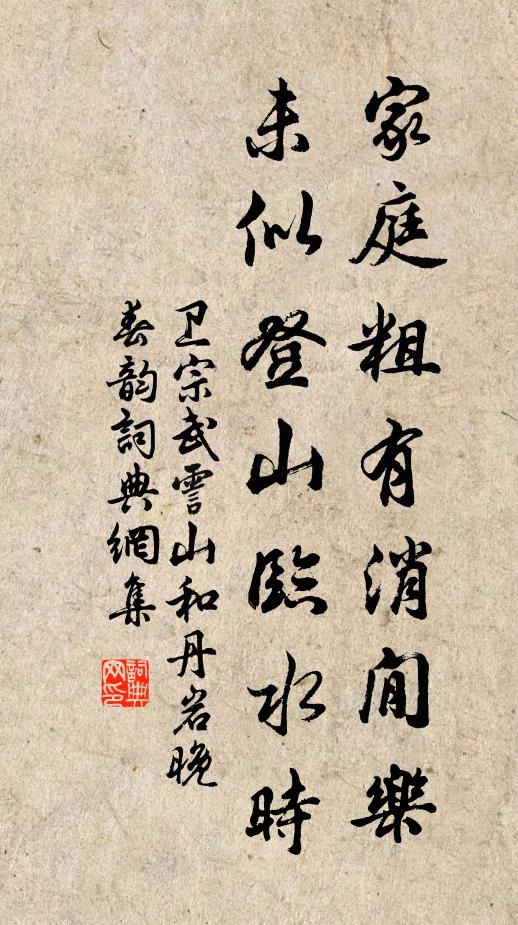 家庭粗有消閒樂
未似登山臨水時
卫宗武雪山和丹岩晚
春韵詞典網集
詞典
网印